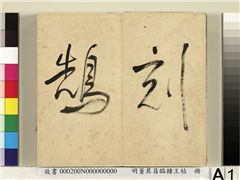 刻
鵠
故書 000200N000000000 明董其昌臨鍾王帖 冊
A1